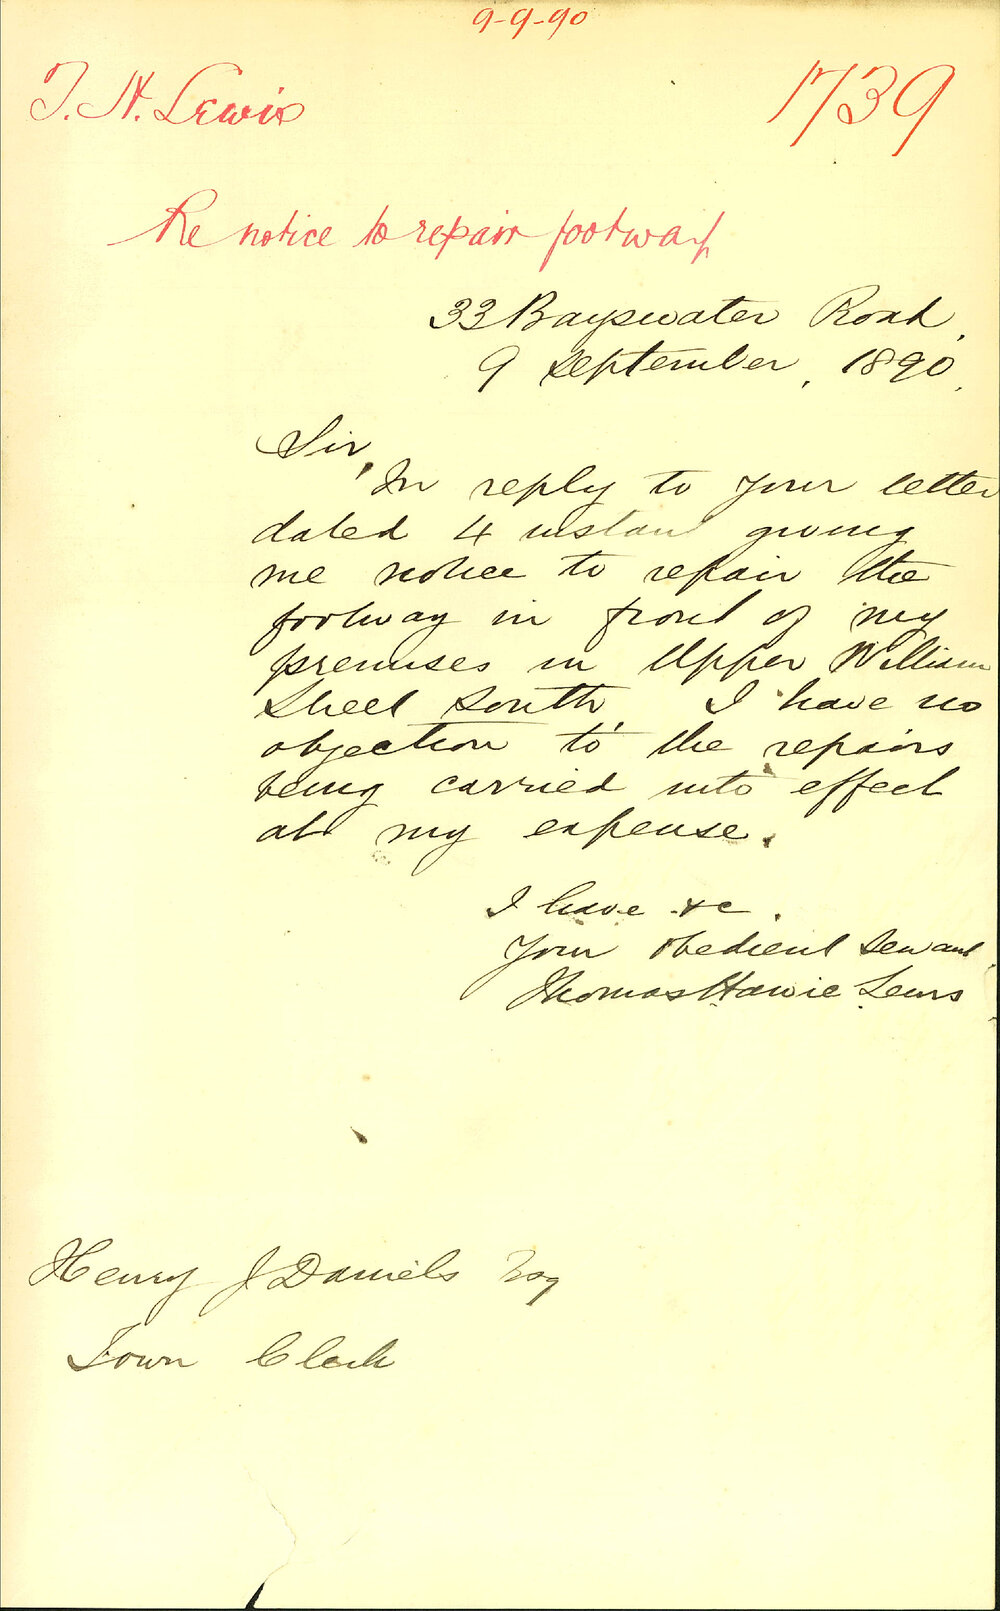 9-9-90
T. H. Lewis
1739
Re notice to repair footway
33 Bayswater Road,
9 September, 1890.
Sir,
In reply to your letter
dated 4 instant giving
me notice to repair the
footway in front of my
premises in Upper William
Street South, I have no
objection to the repairs
being carried into effect
at my expense.
I have &c.
Your obedient servant
Thomas Lewis
Henry J Daniels Esq
Town Clerk